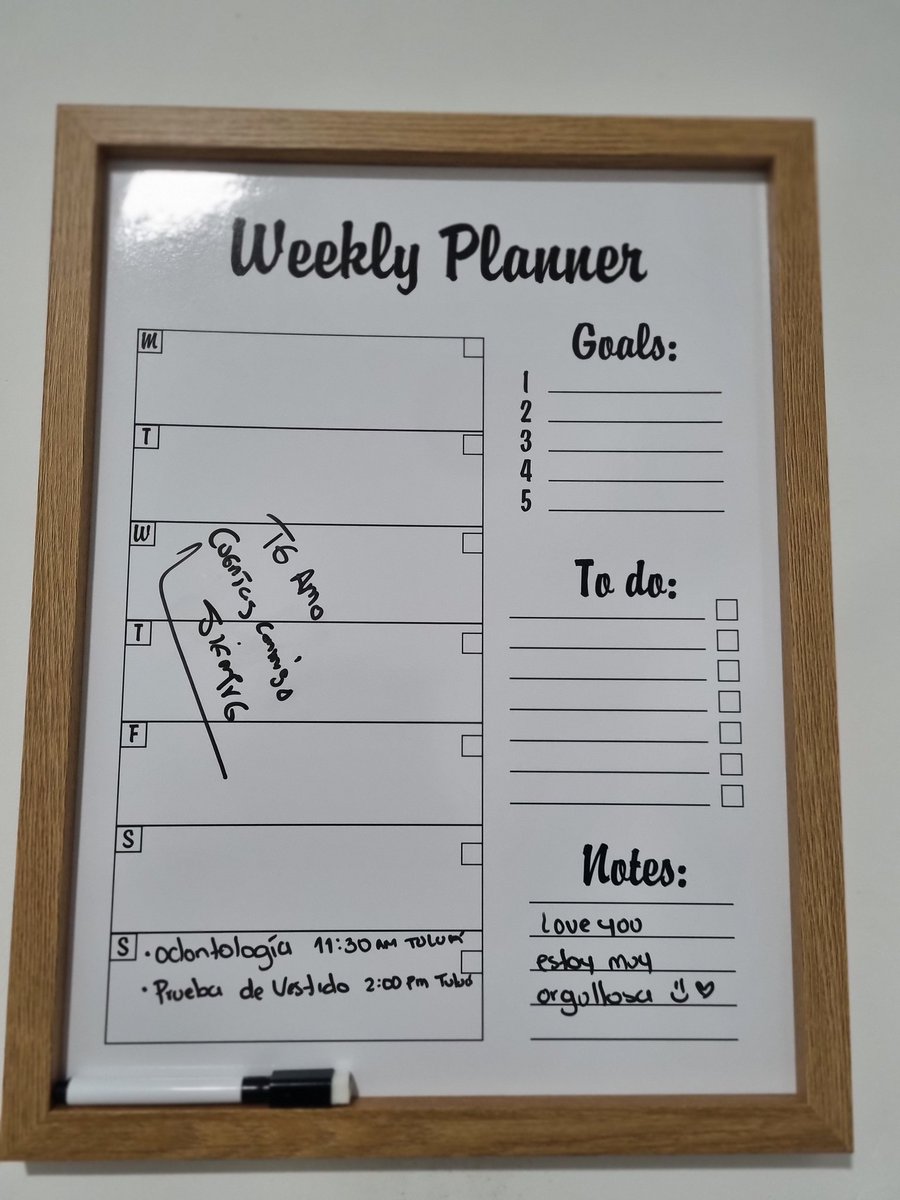 Weekly Planner
M
T
W
T
F
S
S
Te Amo
Cuentas conmigo
Siempre
• odontología 11:30 AM TULUÁ
• Prueba de Vestido 2:00 pm Tuluá
Goals:
1
2
3
4
5
To do:
Notes:
Love you
estoy muy
orgullosa